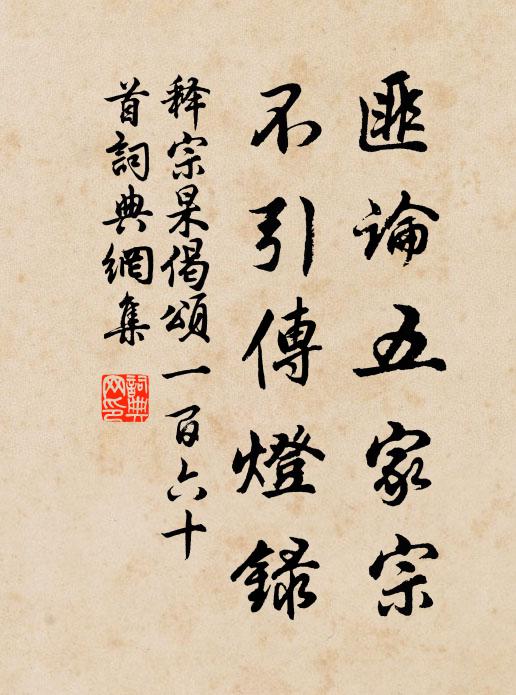 匪論五家宗
不引傳燈錄
释宗杲偈頌一百六十
首詞典網集
詞典网印